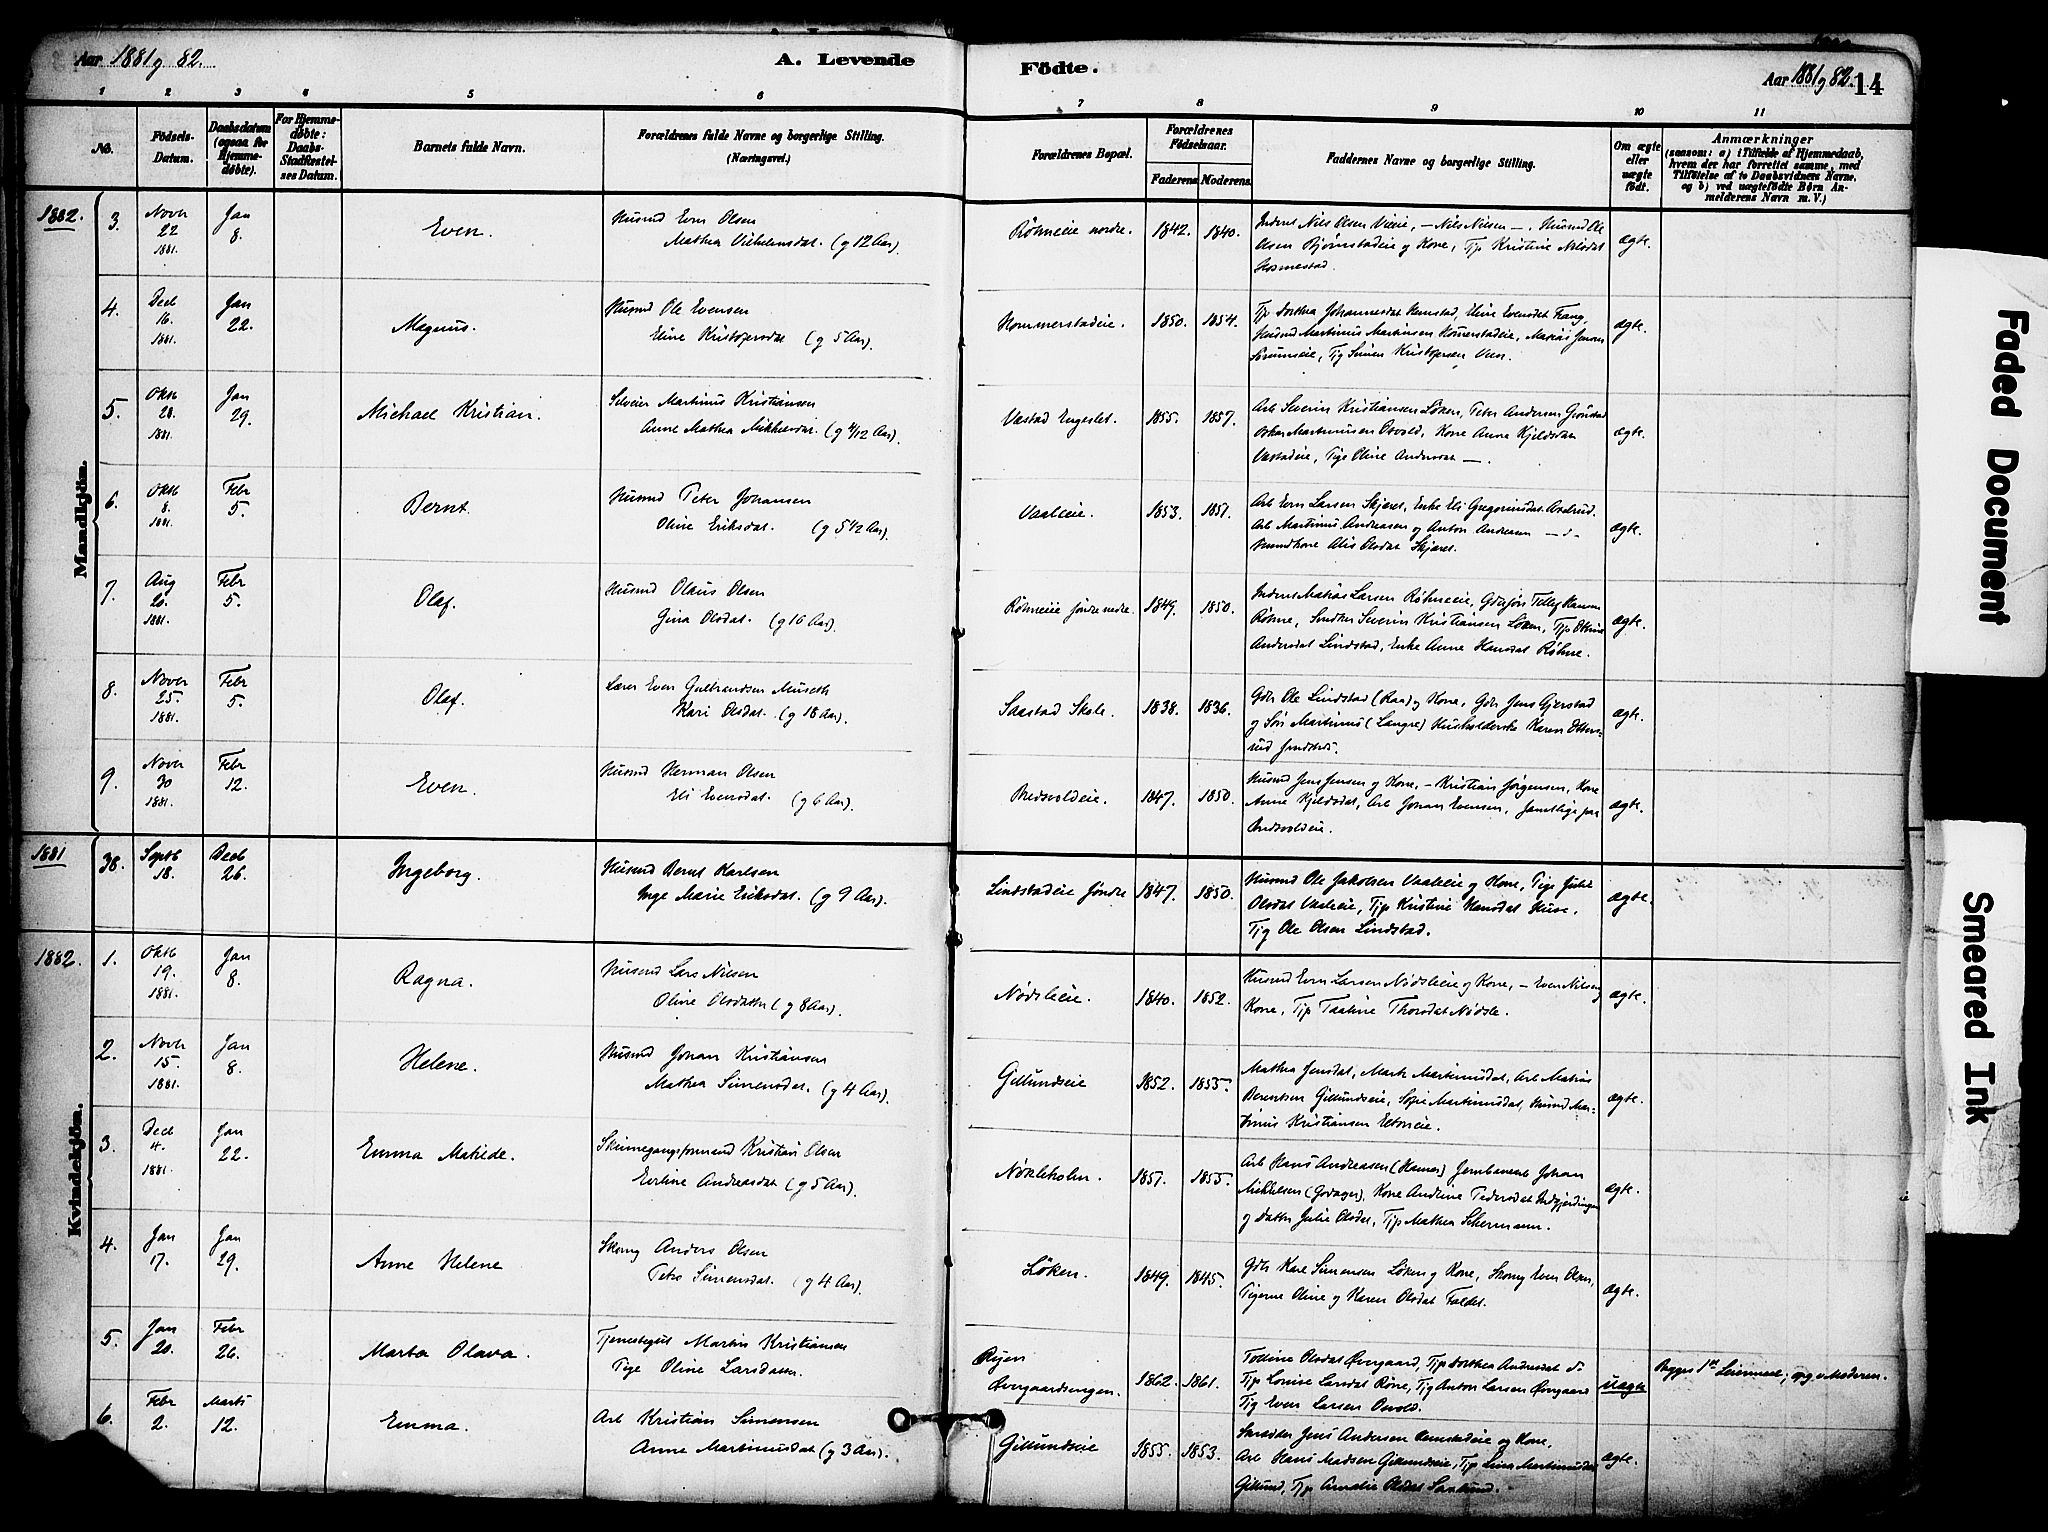 Aar 1881 g 82.
A. Levende
Födte.
Aar 1881 g 82.
14
1 2 3 4 5 6 7 8 9 10 11
No.
Födsels-
Datum.
Daabsdatum
(ogsaa for
Hjemme-
døbte).
For Hjemme-
døbte:
Daabs-
Stadfæstel-
ses Datum.
Barnets fulde Navn.
Forældrenes fulde Navne og borgerlige Stilling.
(Næringsvei.)
Forældrenes Bopæl.
Forældrenes
Födselsaar.
Faderens
Moderens.
Faddernes Navne og borgerlige Stilling.
Om ægte
eller
uægte
født.
Anmærkninger
(saasom: a) i Tilfælde af Hjemmedaab,
hvem der har forrettet samme, med
Tilföielse af to Daabsvidners Navne,
og b) ved uægtefödte Børn An-
melderens Navn m. V.)
Mandkjön.
1882.
3.
Novbr
22
1881.
Jan
8.
Even.
Husmd Even Olsen
Mathea Vilhelmsdat. (g 12 Aar).
Røhneeie nordre.
1842.
1840.
Inderst Niels Olsen Vieie, — Niels Nielsen —. Husmd Ole
Olsen Bjørnstadeie g Kone, Tjp Kristine Nilsdat
Kosmestad.
ægte.
4.
Decb
16.
1881.
Jan
22.
Magnus.
Husmd Ole Evensen
Eline Kristofersdat (g 5 Aar).
Kommerstadeie.
1850.
1854.
Tjp Dorthea Johannesdat Hemstad, Eline Evensdat Frang,
Husmd Martinus Martinsen Kommerstadeie, Matias Jensen
ægte.
5.
Oktb
28.
1881.
Jan
29.
Michael Kristian.
Selveier Martinus Kristiansen
Anne Mathea Mikkelsdat. (g 4/12 Aar).
Vestad Engeslet.
1855.
1857.
Arb Severin Kristiansen Løken, Peter Andersen Grønstad
Oskar Martinusen Osvold, Kone Anne Kjeldsdat
Vestadeie, Pige Oline Andersdat —.
ægte.
6.
Oktb
8.
1881.
Febr
5.
Bernt.
Husmd Peter Johansen
Oline Eriksdat. (g 5 1/2 Aar).
Vaaleeie.
1853.
1851.
Arb Even Larsen Skjæret, Enke Eli Gregoriusdat Axelrud.
Arb Martinus Andreasen g Anton Andreasen — d-
Olsdat Skjæret.
ægte.
7.
Aug
20.
1881.
Febr
5.
Olaf.
Husmd Olaus Olsen
Gina Olsdat. (g 16 Aar).
Røhneeie søndre nedre.
1849.
1850.
Inderst Matias Larsen Røhneeie, Gdsejers Tollef Hansen
Røhne, Snedker Severin Kristiansen Løken, Tjp Ottine
Andersdat Lindstad, Enke Anne Hansdat Røhne.
ægte.
8.
Novbr
25.
1881.
Febr
5.
Olaf.
Lærer Even Gulbrandsen Museth
Kari Olsdat. (g 18 Aar).
Saastad Skole.
1838.
1836.
Gdr Ole Lindstad (Raa) g Kone, Gdr Jens Gjerstad
g Søn Martinus (Langre) Husholderske Karen Otters-
rud
ægte.
9.
Novbr
30
1881.
Febr
12.
Even.
Husmd Herman Olsen
Eli Evensdat. (g 6 Aar).
1847.
1850.
Husmd Jens Jensen g Kone, — Kristian Jørgensen, Kone
Anne Kjeldsdat, Arb Johan Evensen, samtlige paa
ægte.
1881
38.
Septb
18.
Decb
26.
Ingeborg.
Husmd Bernt Karlsen
Inge Marie Eriksdat. (g 9 Aar).
Lindstadeie søndre
1847.
1850.
Husmd Ole Jakobsen Vaaleeie g Kone, Pige Julie
Olsdat Vaaleeie, Tjp Kristine Hansdat Huse,
Tjg Ole Olsen Lindstad.
ægte.
Kvindekjön.
1882.
1.
Oktb
19.
1881.
Jan
8.
Ragna.
Husmd Lars Nilsen
Oline Olsdatter (g 8 Aar).
Nødsleeie.
1840.
1852.
Husmd Even Larsen Nødsleeie g Kone, — Even Nilsen g
Kone, Tjp Taaline Thorsdat Nødsle.
ægte.
2.
Novbr
15.
1881.
Jan
8.
Helene.
Husmd Johan Kristiansen
Mathea Simensdat. (g 4 Aar).
Gillundseie
1852.
1855.
Mathea Jensdat, Marte Martinusdat, Arb Matias
Berentsen Gillundseie, Sofie Martinusdat, Husmd Mar-
tinus Kristiansen Eltoneie.
ægte.
3.
Decb
4.
1881.
Jan
22.
Emma Matilde.
Skinnegangsformand Kristian Olsen
Eveline Andreasdat (g 5 Aar).
Nøkleholm.
1851.
1855.
Arb Hans Andreasen (Hamar) Jernbanearb Johan
Mikkelsen (Godager), Kone Andrine Pedersdat Indgjerdingen
g Datter Julie Olsdat, Tjp Mathea Schermann.
ægte.
4.
Jan
17.
Jan
29.
Anne Helene
Skomg Anders Olsen
Petra Simensdat. (g 4 Aar).
Løken.
1849.
1845.
Gdr Kare Simensen Løken g Kone, Skomg Even Olsen,
Pigerne Oline g Karen Olsdat Faldet.
ægte.
5.
Jan
20.
Febr
26.
Marta Olava.
Tjenestegut Martin Kristiansen
Pige Oline Larsdatter.
Ryen
Øvergaardsengen.
1862.
1861.
Olsdat Øvergaard, Tjp Dorthea Andersdat d-
Tjp Louise Larsdat Røne, Tjg Anton Larsen Øvergaard
Tjg Even Larsen Osvold.
uægte
Begges 1ste Leiermaal; opg. a Moderen.
6.
Febr
2.
Marts
12.
Emma.
Arb Kristian Simensen
Anne Martinusdat (g 3 Aar).
Gillundseie
1855.
1853.
Jens Andersen Hemstadeie og Kone,
Arb Hans Madsen Gillundseie, Tjp Lina Martinusdat
Gillund, Tjp Amalie Olsdat
ægte.
Faded Document
Smeared Ink